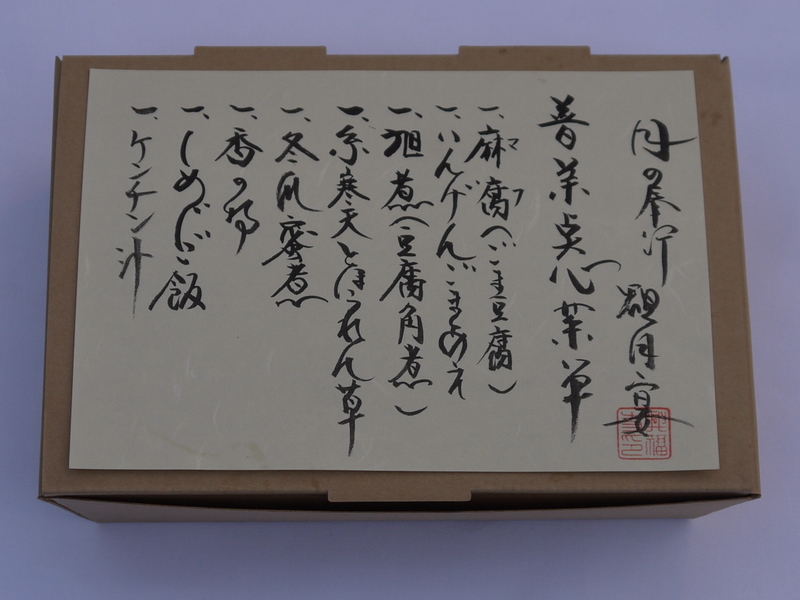 月の奉行 観月宴
普茶点心菜単
一、麻腐(ごま豆腐)
マフ
一、いんげんごまあえ
一、胆煮(豆腐角煮)
一、糸寒天とほうれん草
一、冬瓜蜜煮
一、香の物
一、しめじご飯
一、ケンチン汁